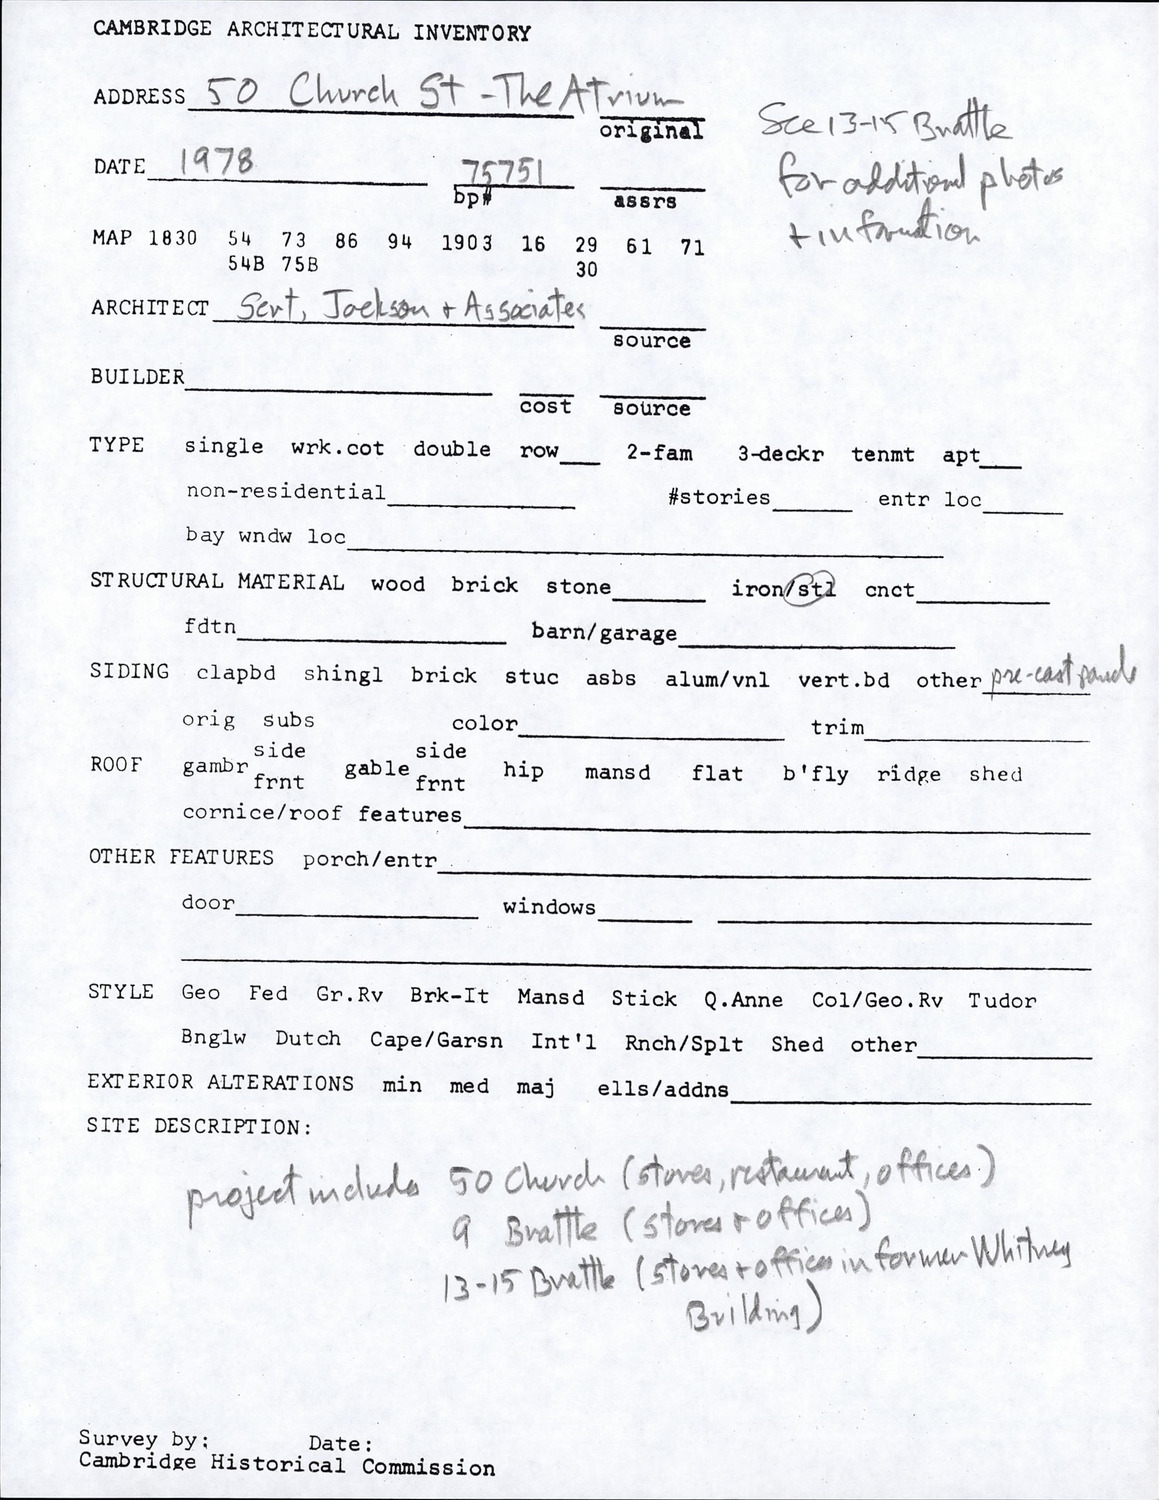 CAMBRIDGE ARCHITECTURAL INVENTORY
ADDRESS 50 Church St - The Atrium
original
See 13-15 Brattle
for additional photos
+ information
DATE 1978 75751
bp# assrs
MAP 1830 54 73 86 94 1903 16 29 61 71
54B 75B 30
ARCHITECT Sert, Jackson + Associates
source
BUILDER
cost source
TYPE single wrk.cot double row 2-fam 3-deckr tenmt apt
non-residential #stories entr loc
bay wndw loc
STRUCTURAL MATERIAL wood brick stone iron/stl cnct
fdtn barn/garage
SIDING clapbd shingl brick stuc asbs alum/vnl vert.bd other pre-cast panels
orig subs color trim
side side
ROOF gambr gable hip mansd flat b'fly ridge shed
frnt frnt
cornice/roof features
OTHER FEATURES porch/entr
door windows
STYLE Geo Fed Gr.Rv Brk-It Mansd Stick Q.Anne Col/Geo.Rv Tudor
Bnglw Dutch Cape/Garsn Int'l Rnch/Splt Shed other
EXTERIOR ALTERATIONS min med maj ells/addns
SITE DESCRIPTION:
project includes 50 Church (stores, restaurant, offices)
9 Brattle (stores + offices)
13-15 Brattle (stores + offices in former Whitney
Building)
Survey by: Date:
Cambridge Historical Commission